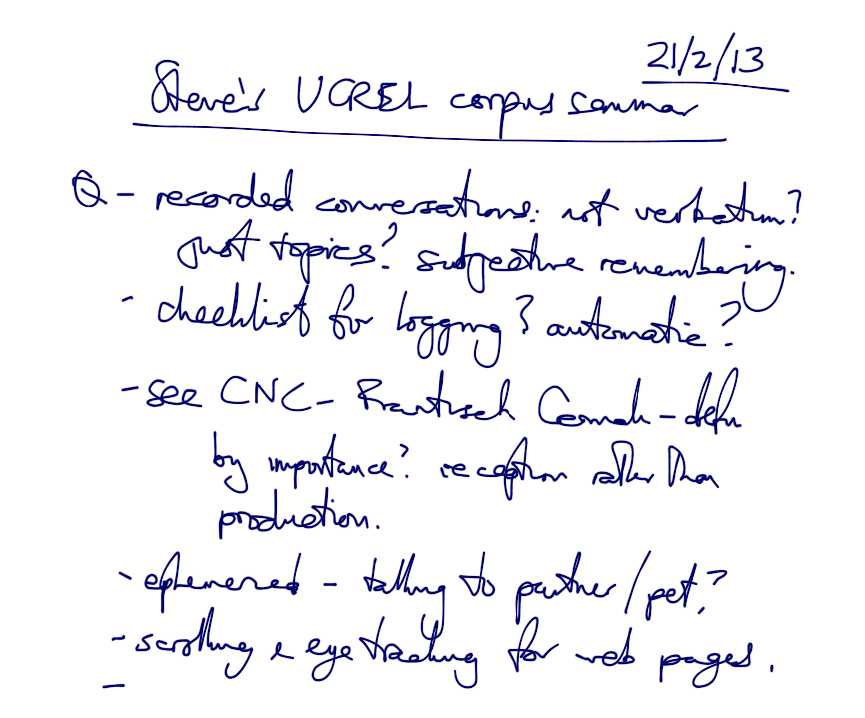 21/2/13
Steve's UCREL corpus seminar
Q - recorded conversations: not verbatim?
just topics? subjective remembering.
- checklist for logging? automatic?
- see CNC - Frantisek Cermak - defn
by importance? reception rather than
production.
- ephemeral - talking to partner/pet?
- scrolling & eye tracking for web pages.
-